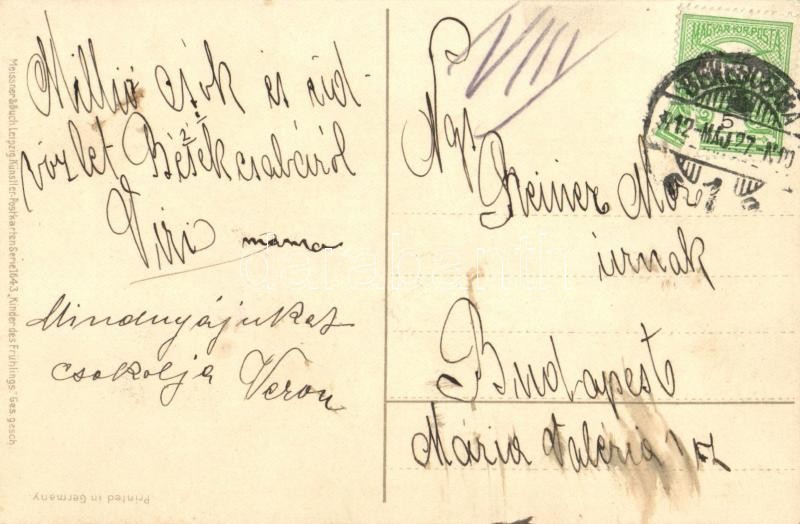 Millió csók és üd-
vözlet Békéscsabáról
Viri mama
Mindnyájukat
csokolja Veron
VIII
Ngs
Reiner Mór
úrnak
Budapest
Mária Valéria
MAGYAR KIR. POSTA
BÉKÉSCSABA
912 MÁJ 27
Meissner & Buch Leipzig Künstler-Postkarten Serie 1643 „Kinder des Frühlings" Ges. gesch.
Printed in Germany.
darabanth